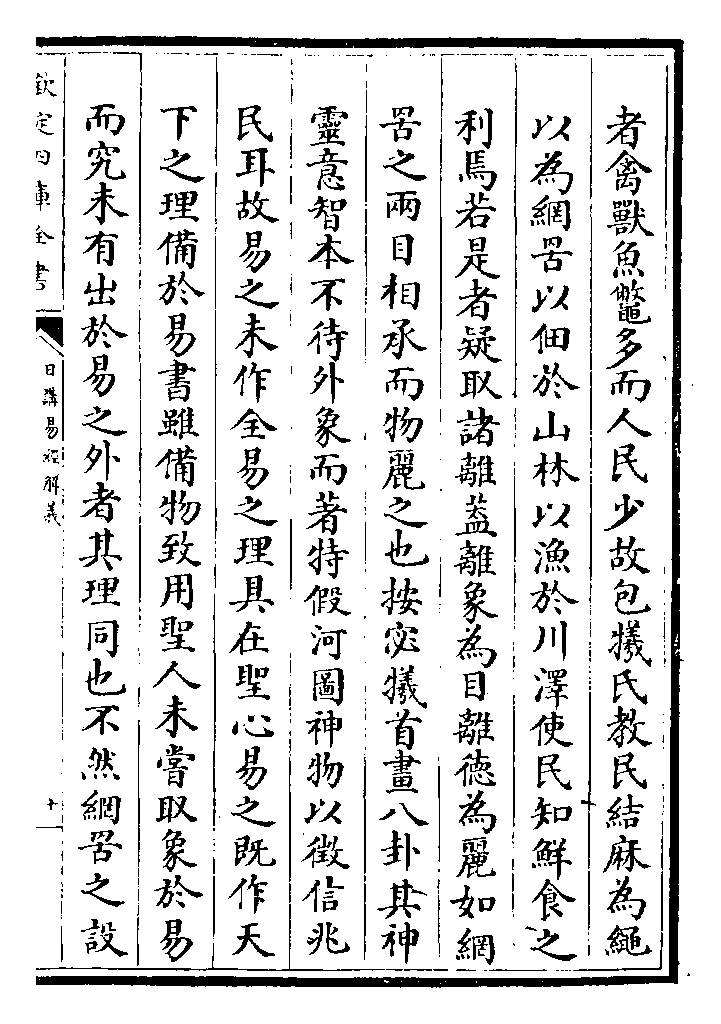 者禽獸魚鼈多而人民少故包犧氏教民結麻為繩
以為網罟以佃於山林以漁於川澤使民知鮮食之
利焉若是者疑取諸離葢離象為目離德為麗如網
罟之兩目相承而物麗之也按宓犧首畫八卦其神
靈意智本不待外象而著特假河圖神物以徵信兆
民耳故易之未作全易之理具在聖心易之既作天
下之理備於易書雖備物致用聖人未嘗取象於易
而究未有出於易之外者其理同也不然網罟之設
欽定四庫全書
日講易經解義
十